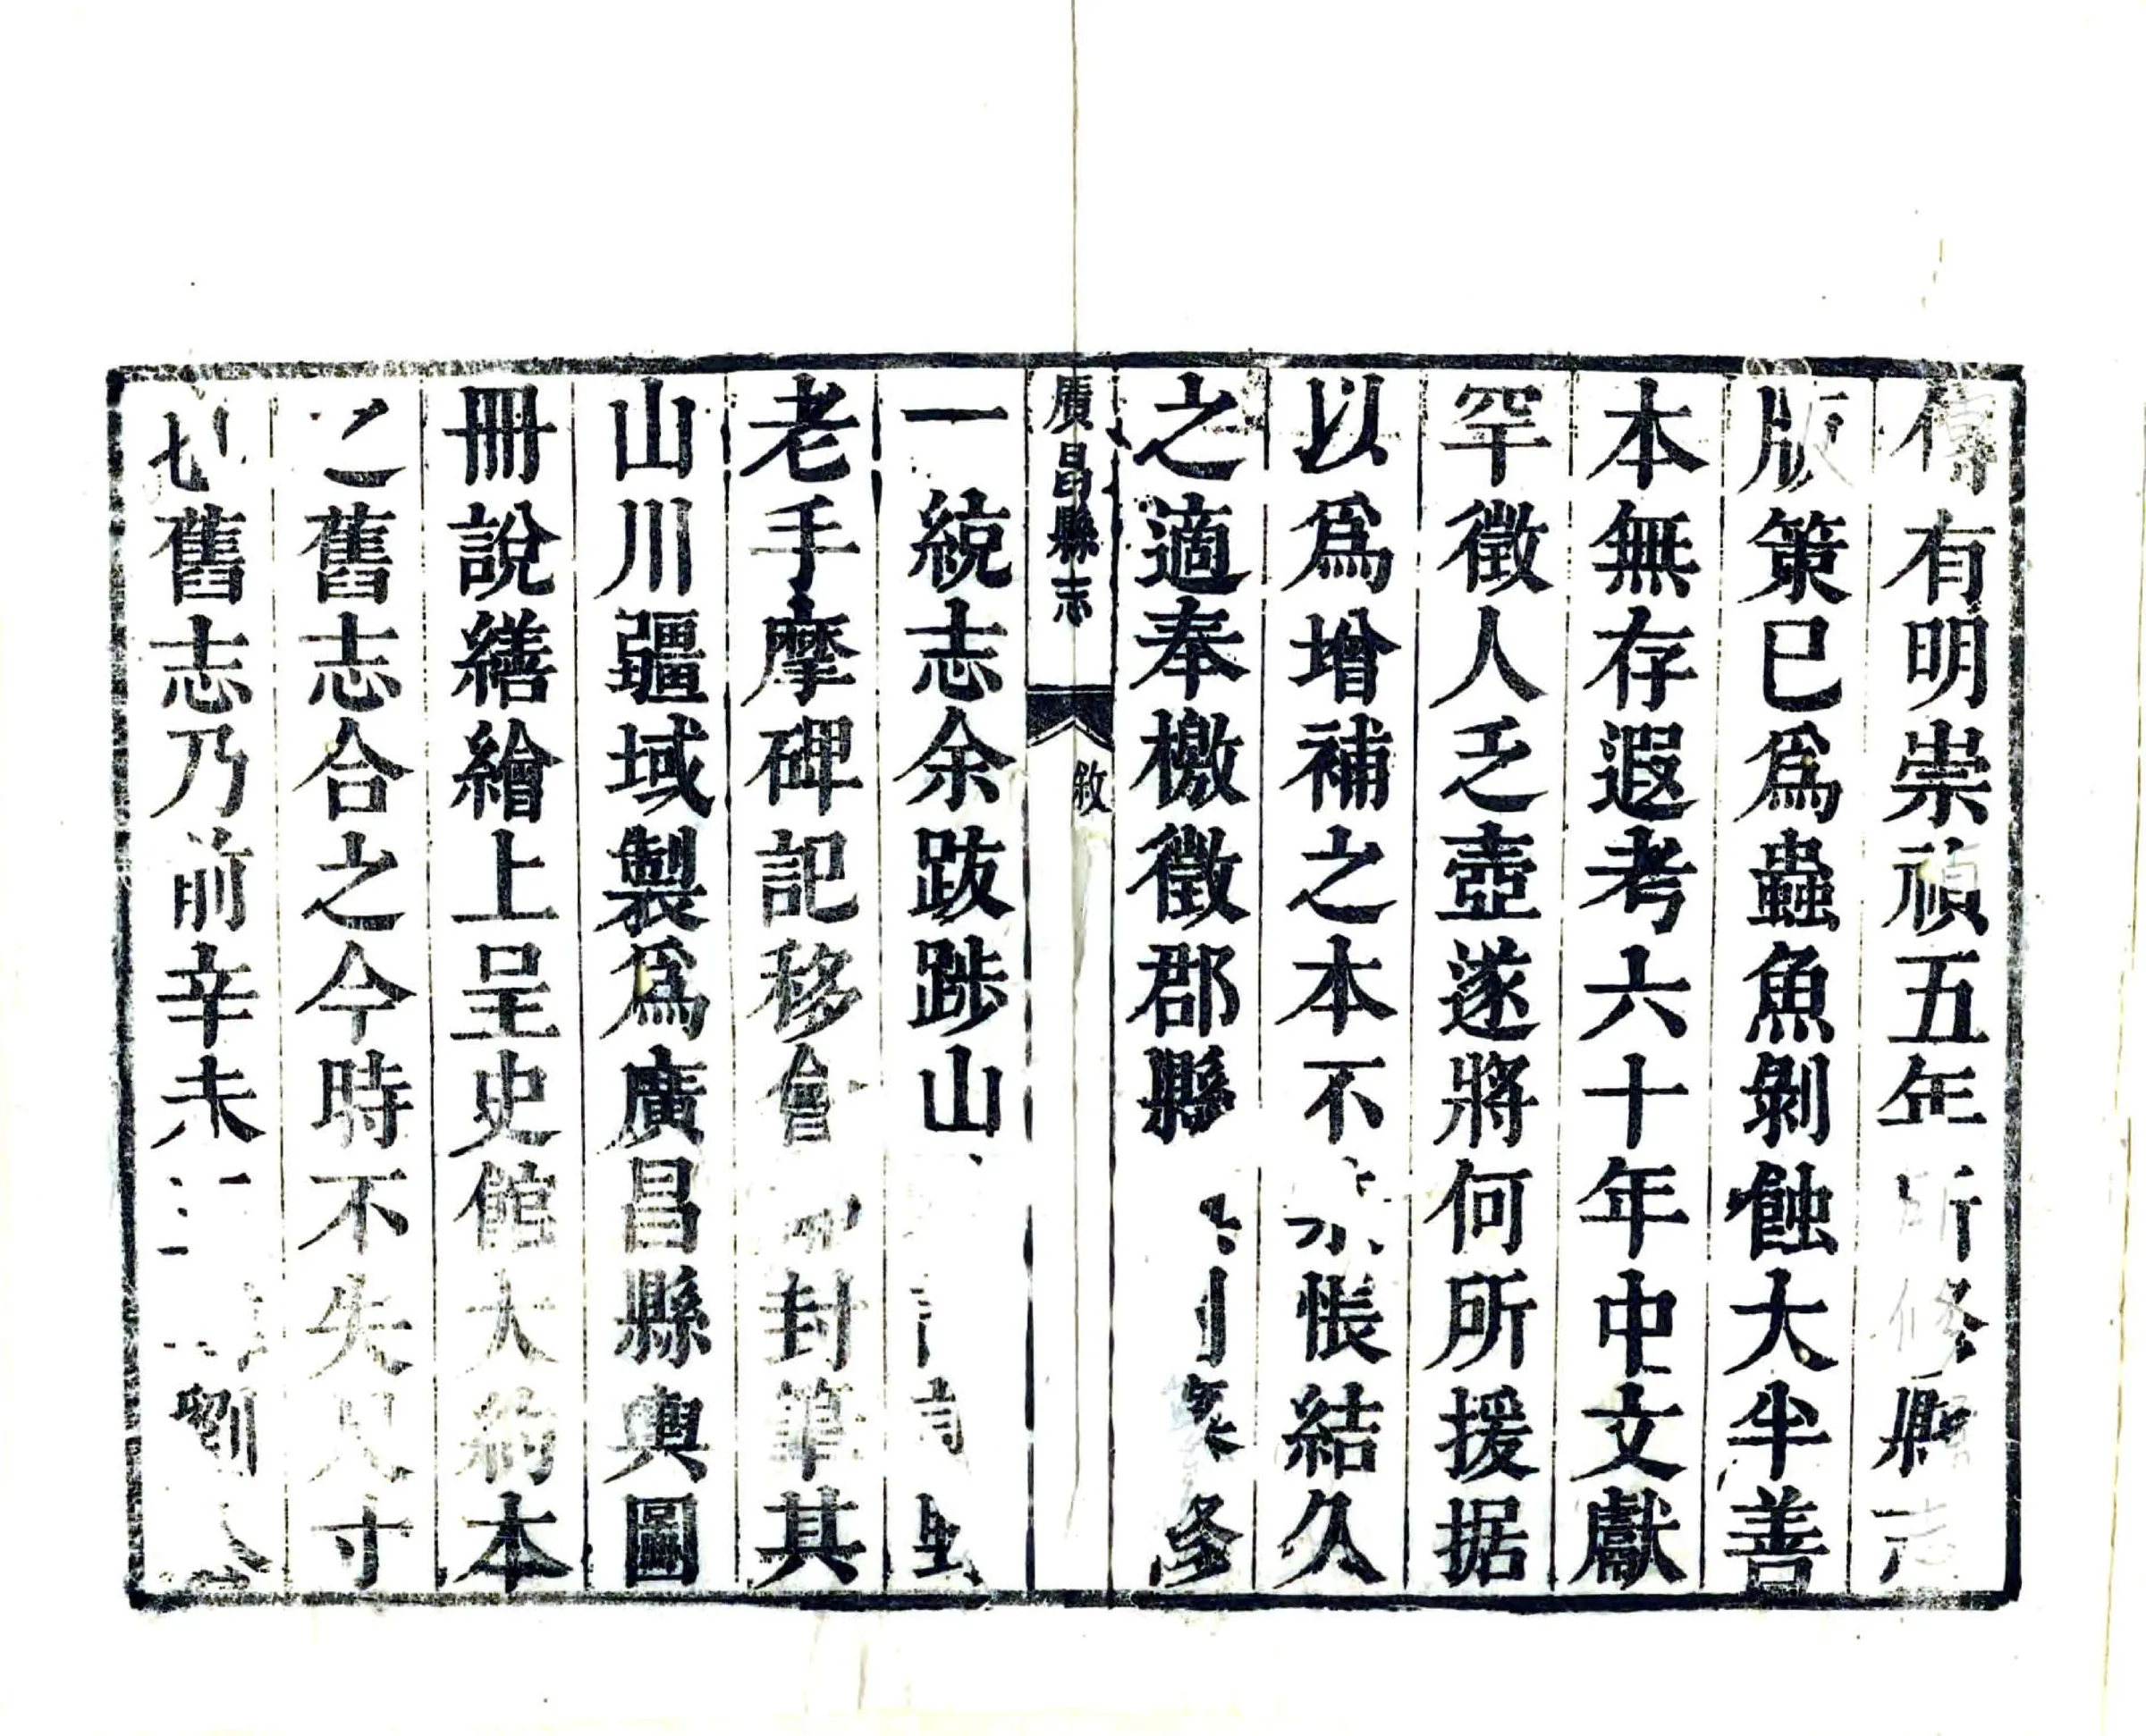 傳有明崇禎五年所修縣志
版策已爲蟲魚剝蝕大半善
本無存遐考六十年中文獻
罕徵人乏壺遂將何所援据
以爲增補之本不悵結久
之適奉檄徵郡縣修
廣昌縣志
敘
一統志余跋踄山
老手摩碑記移會封筆其
山川疆域製爲廣昌縣輿圖
冊說繕繪上呈史館大約本
之舊志合之今時不失尺寸
舊志乃前辛未劉